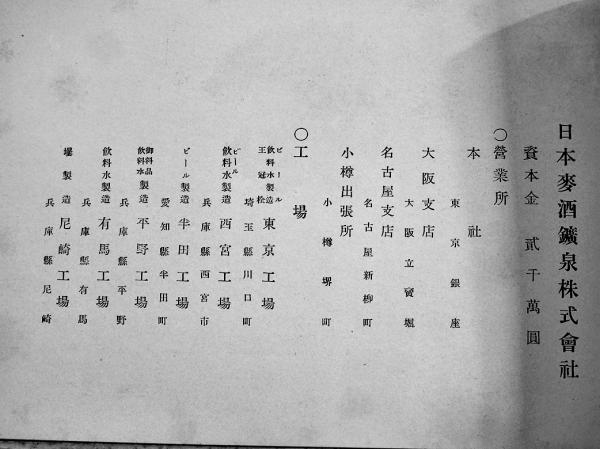 日本麥酒鑛泉株式會社
資本金 貳千萬圓
〇營業所
本社
東京銀座
大阪支店
大阪立賣堀
名古屋支店
名古屋新柳町
小樽出張所
小樽堺町
〇工場
ビール
飲料水製造 東京工場
王冠松
埼玉縣川口町
ビール
飲料水製造 西宮工場
兵庫縣西宮市
ビール製造 半田工場
愛知縣半田町
御料品
飲料水製造 平野工場
兵庫縣平野
飲料水製造 有馬工場
兵庫縣有馬
壜製造 尼崎工場
兵庫縣尼崎